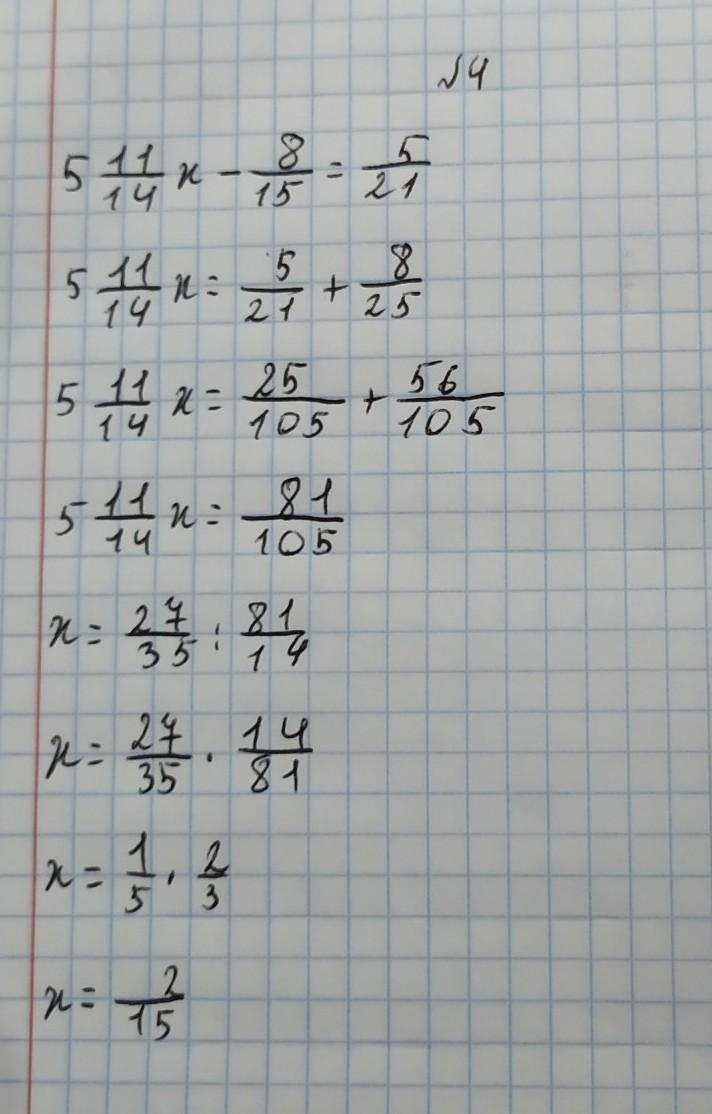 №4
5 11/14 x - 8/15 = 5/21
5 11/14 x = 5/21 + 8/25
5 11/14 x = 25/105 + 56/105
5 11/14 x = 81/105
x = 27/35 : 81/14
x = 27/35 · 14/81
x = 1/5 · 2/3
x = 2/15